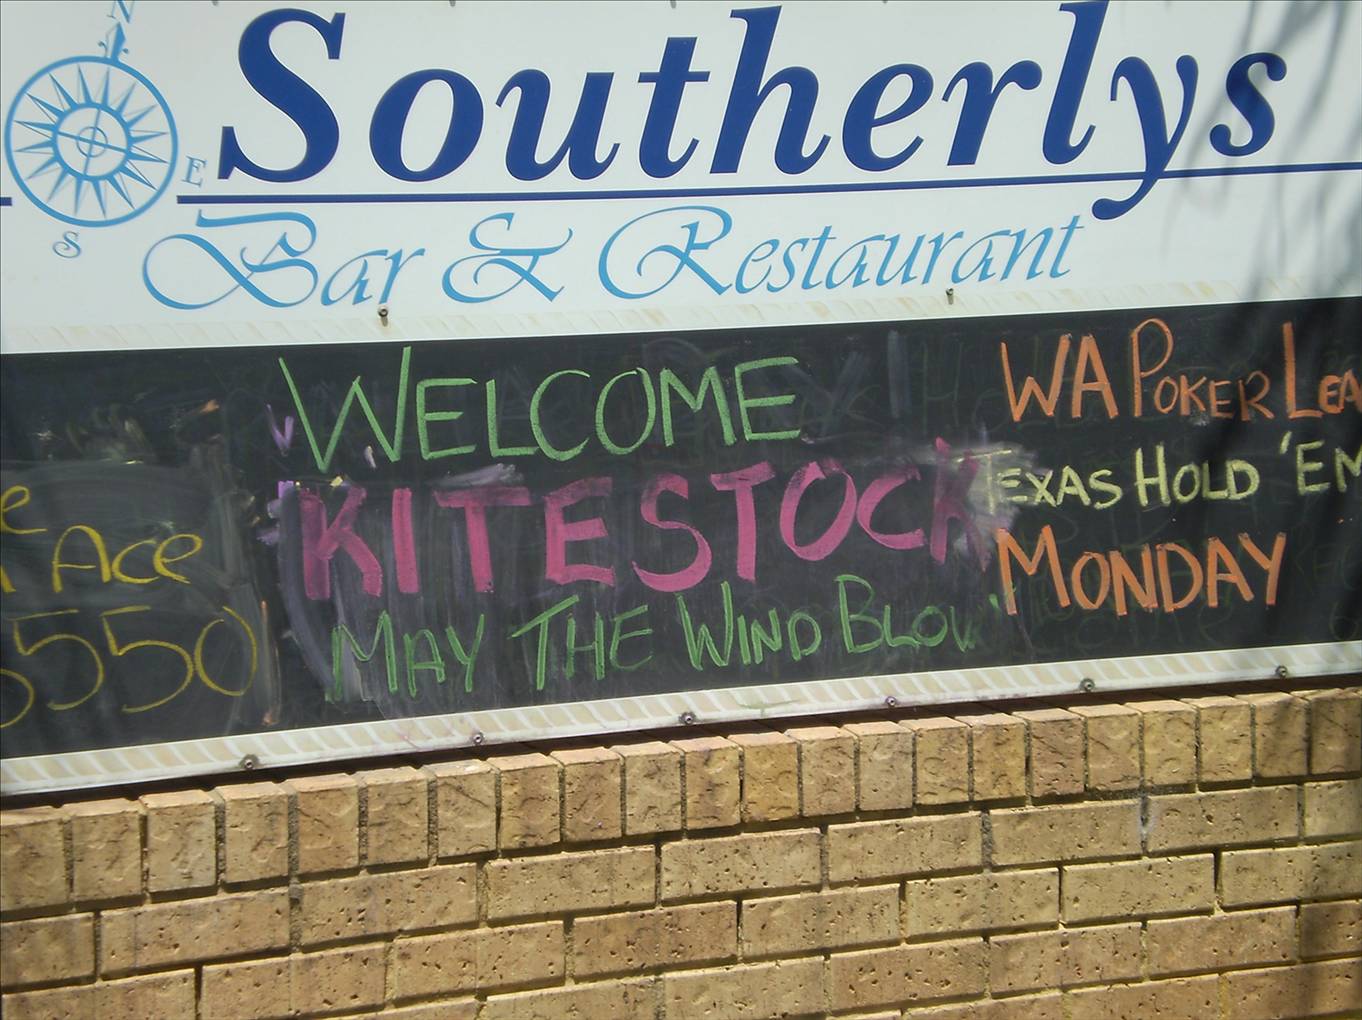 N
E
S
Southerlys
Bar & Restaurant
Ace
5550
WELCOME
KITESTOCK
MAY THE WIND BLOW
WA POKER LEA
TEXAS HOLD 'EM
MONDAY